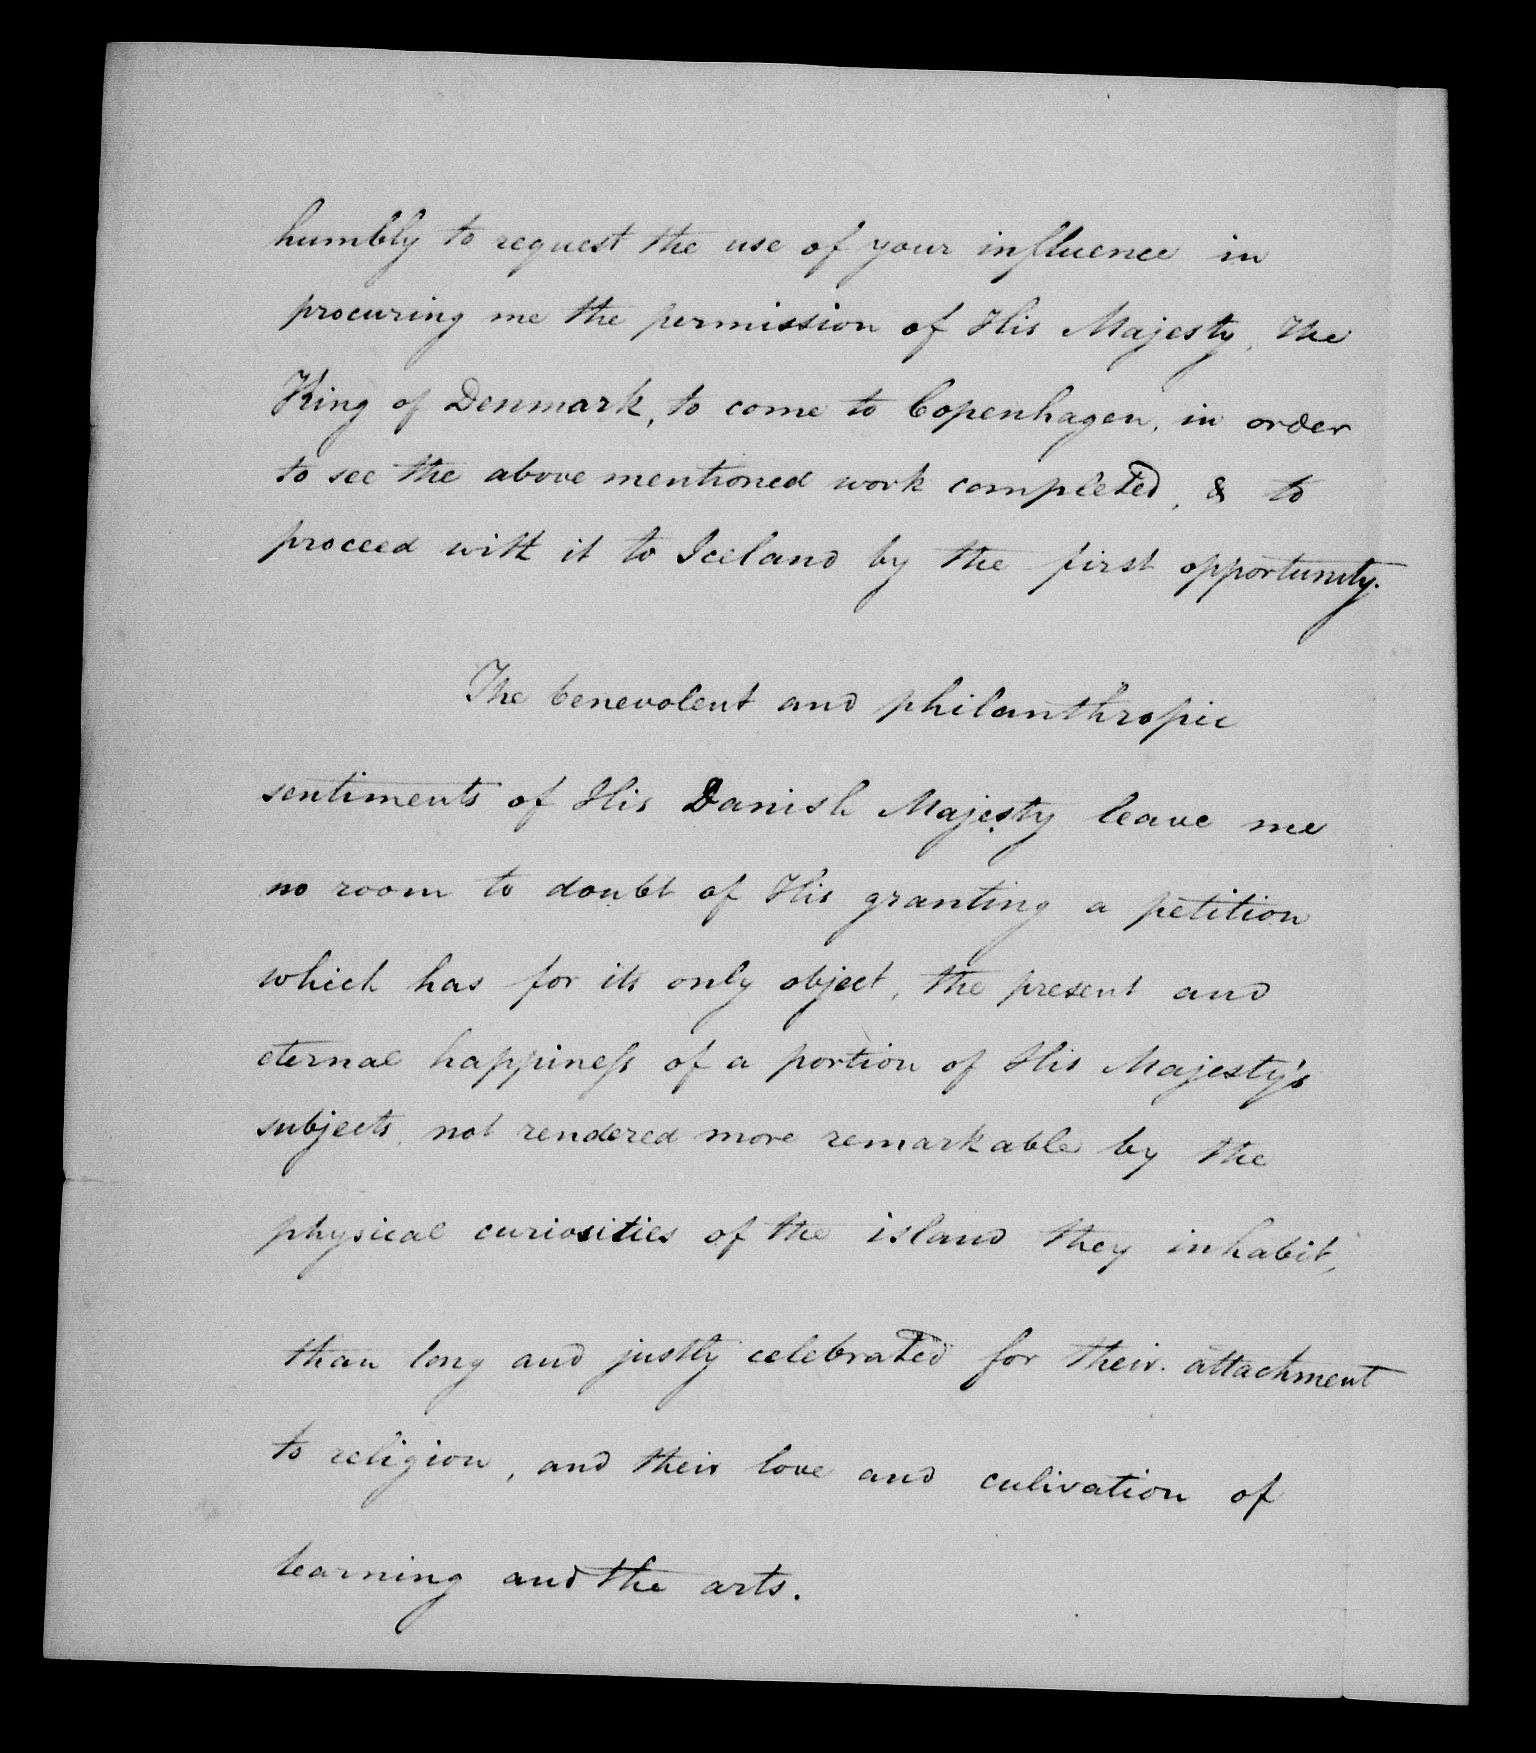 humbly to request the use of your influence in
procuring me the permission of His Majesty, the
King of Denmark, to come to Copenhagen, in order
to see the above mentioned work completed, & to
proceed with it to Iceland by the first opportunity.
The benevolent and philanthropic
sentiments of His Danish Majesty leave me
no room to doubt of His granting a petition
which has for its only object, the present and
eternal happineſs of a portion of His Majesty's
subjects, not rendered more remarkable by the
physical curiosities of the island they inhabit,
than long and justly celebrated for their attachment
to religion, and their love and culivation of
learning and the arts.